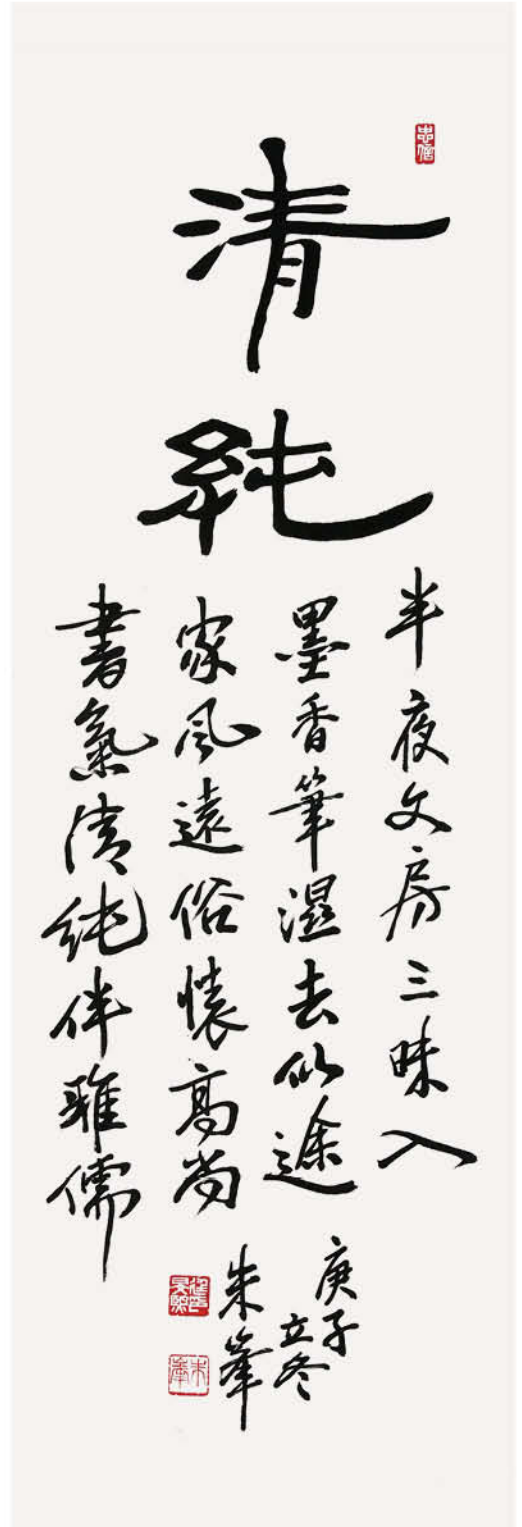 忠信
清
純
半夜文房三昧入
墨香筆濕去似途
家風遠俗懷高尚
書氣清純伴雅儒
庚子
立冬
朱峯